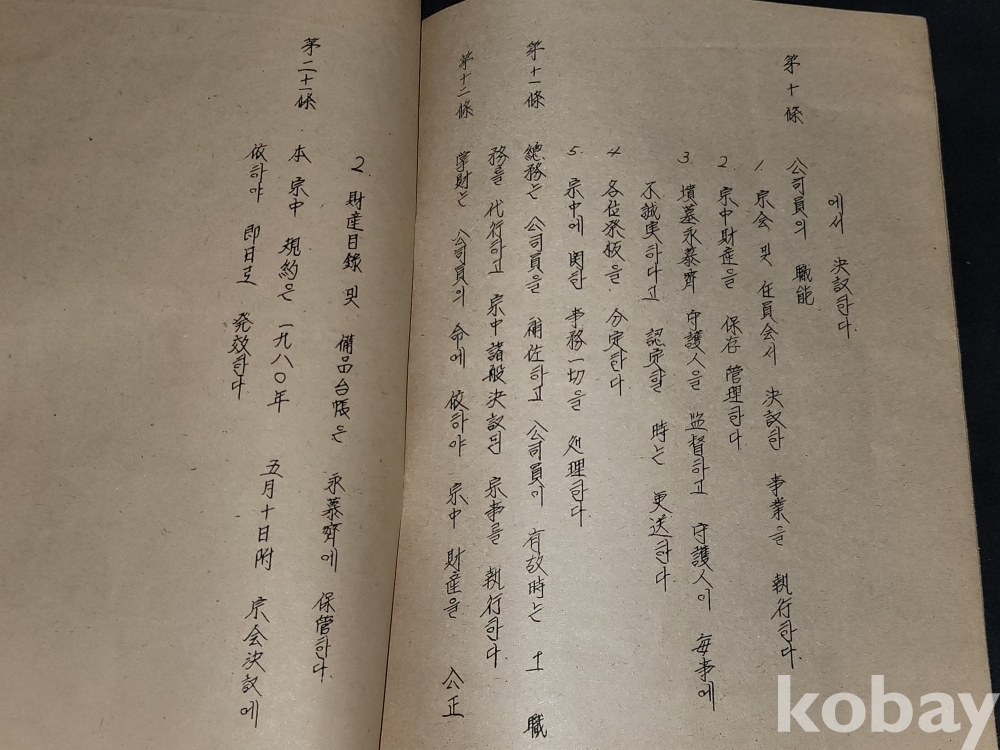 에서 決議한다.
第十條 公司員의 職能
1. 宗会 및 任員会서 決議한 事業을 執行한다.
2. 宗中財産을 保存管理한다
3. 墳墓永慕齊 守護人을 监督하고 守護人이 每事에
不誠実하다고 認定할 時는 更送한다
4 各位祭板을 分定한다
5. 宗中에 関한 事務一切을 処理한다
第十一條 總務는 公司員을 補佐하고 公司員이 有故時는 士 職
務를 代行하고 宗中諸般決議된 宗事를 執行한다.
第十二條 掌財는 公司員의 命에 依하야 宗中 財産을 公正
2. 財産目録 및 備品台帳은 永慕齊에 保管한다.
第二十一條 本 宗中 規約은 一九八〇年 五月十日附 宗会決議에
依하야 即日로 発效한다
kobay